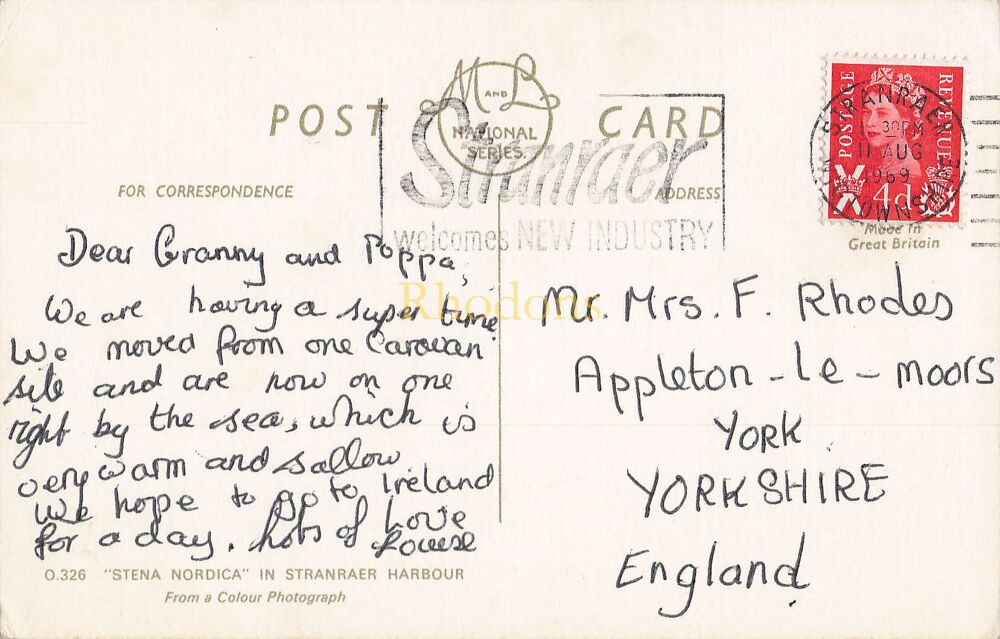 POST CARD
M AND L
NATIONAL
SERIES.
Stranraer
welcomes NEW INDUSTRY
FOR CORRESPONDENCE
ADDRESS
POSTAGE
REVENUE
4d
STRANRAER
30PM
11 AUG
1969
WIGTOWNSHIRE
Made in
Great Britain
Dear Granny and Poppa,
We are having a super time
We moved from one Caravan
site and are now on one
right by the sea, which is
very warm and sallow
We hope to go to Ireland
for a day. Lots of Love
Louise
Mr. Mrs. F. Rhodes
Appleton-le-moors
YORK
YORKSHIRE
England
Rhodons
O.326 "STENA NORDICA" IN STRANRAER HARBOUR
From a Colour Photograph